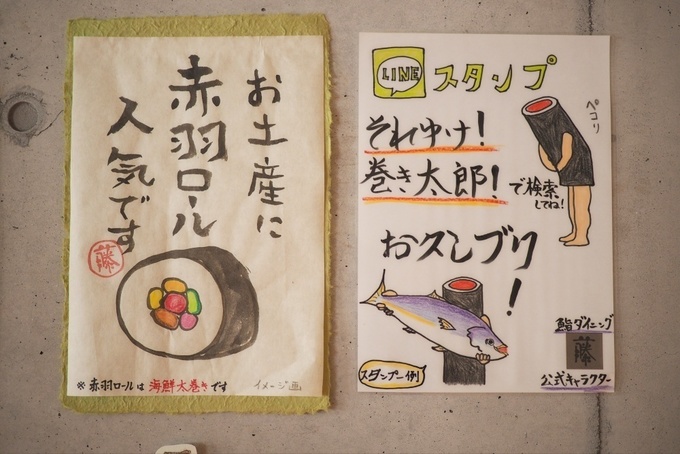 お土産に
赤羽ロール
人気です
藤
※赤羽ロールは海鮮太巻きです
イメージ画
LINE スタンプ
それゆけ!
巻き太郎!
で検索
してね!
ペコリ
お久しブリ!
スタンプ一例
鮨ダイニング
藤
公式キャラクター